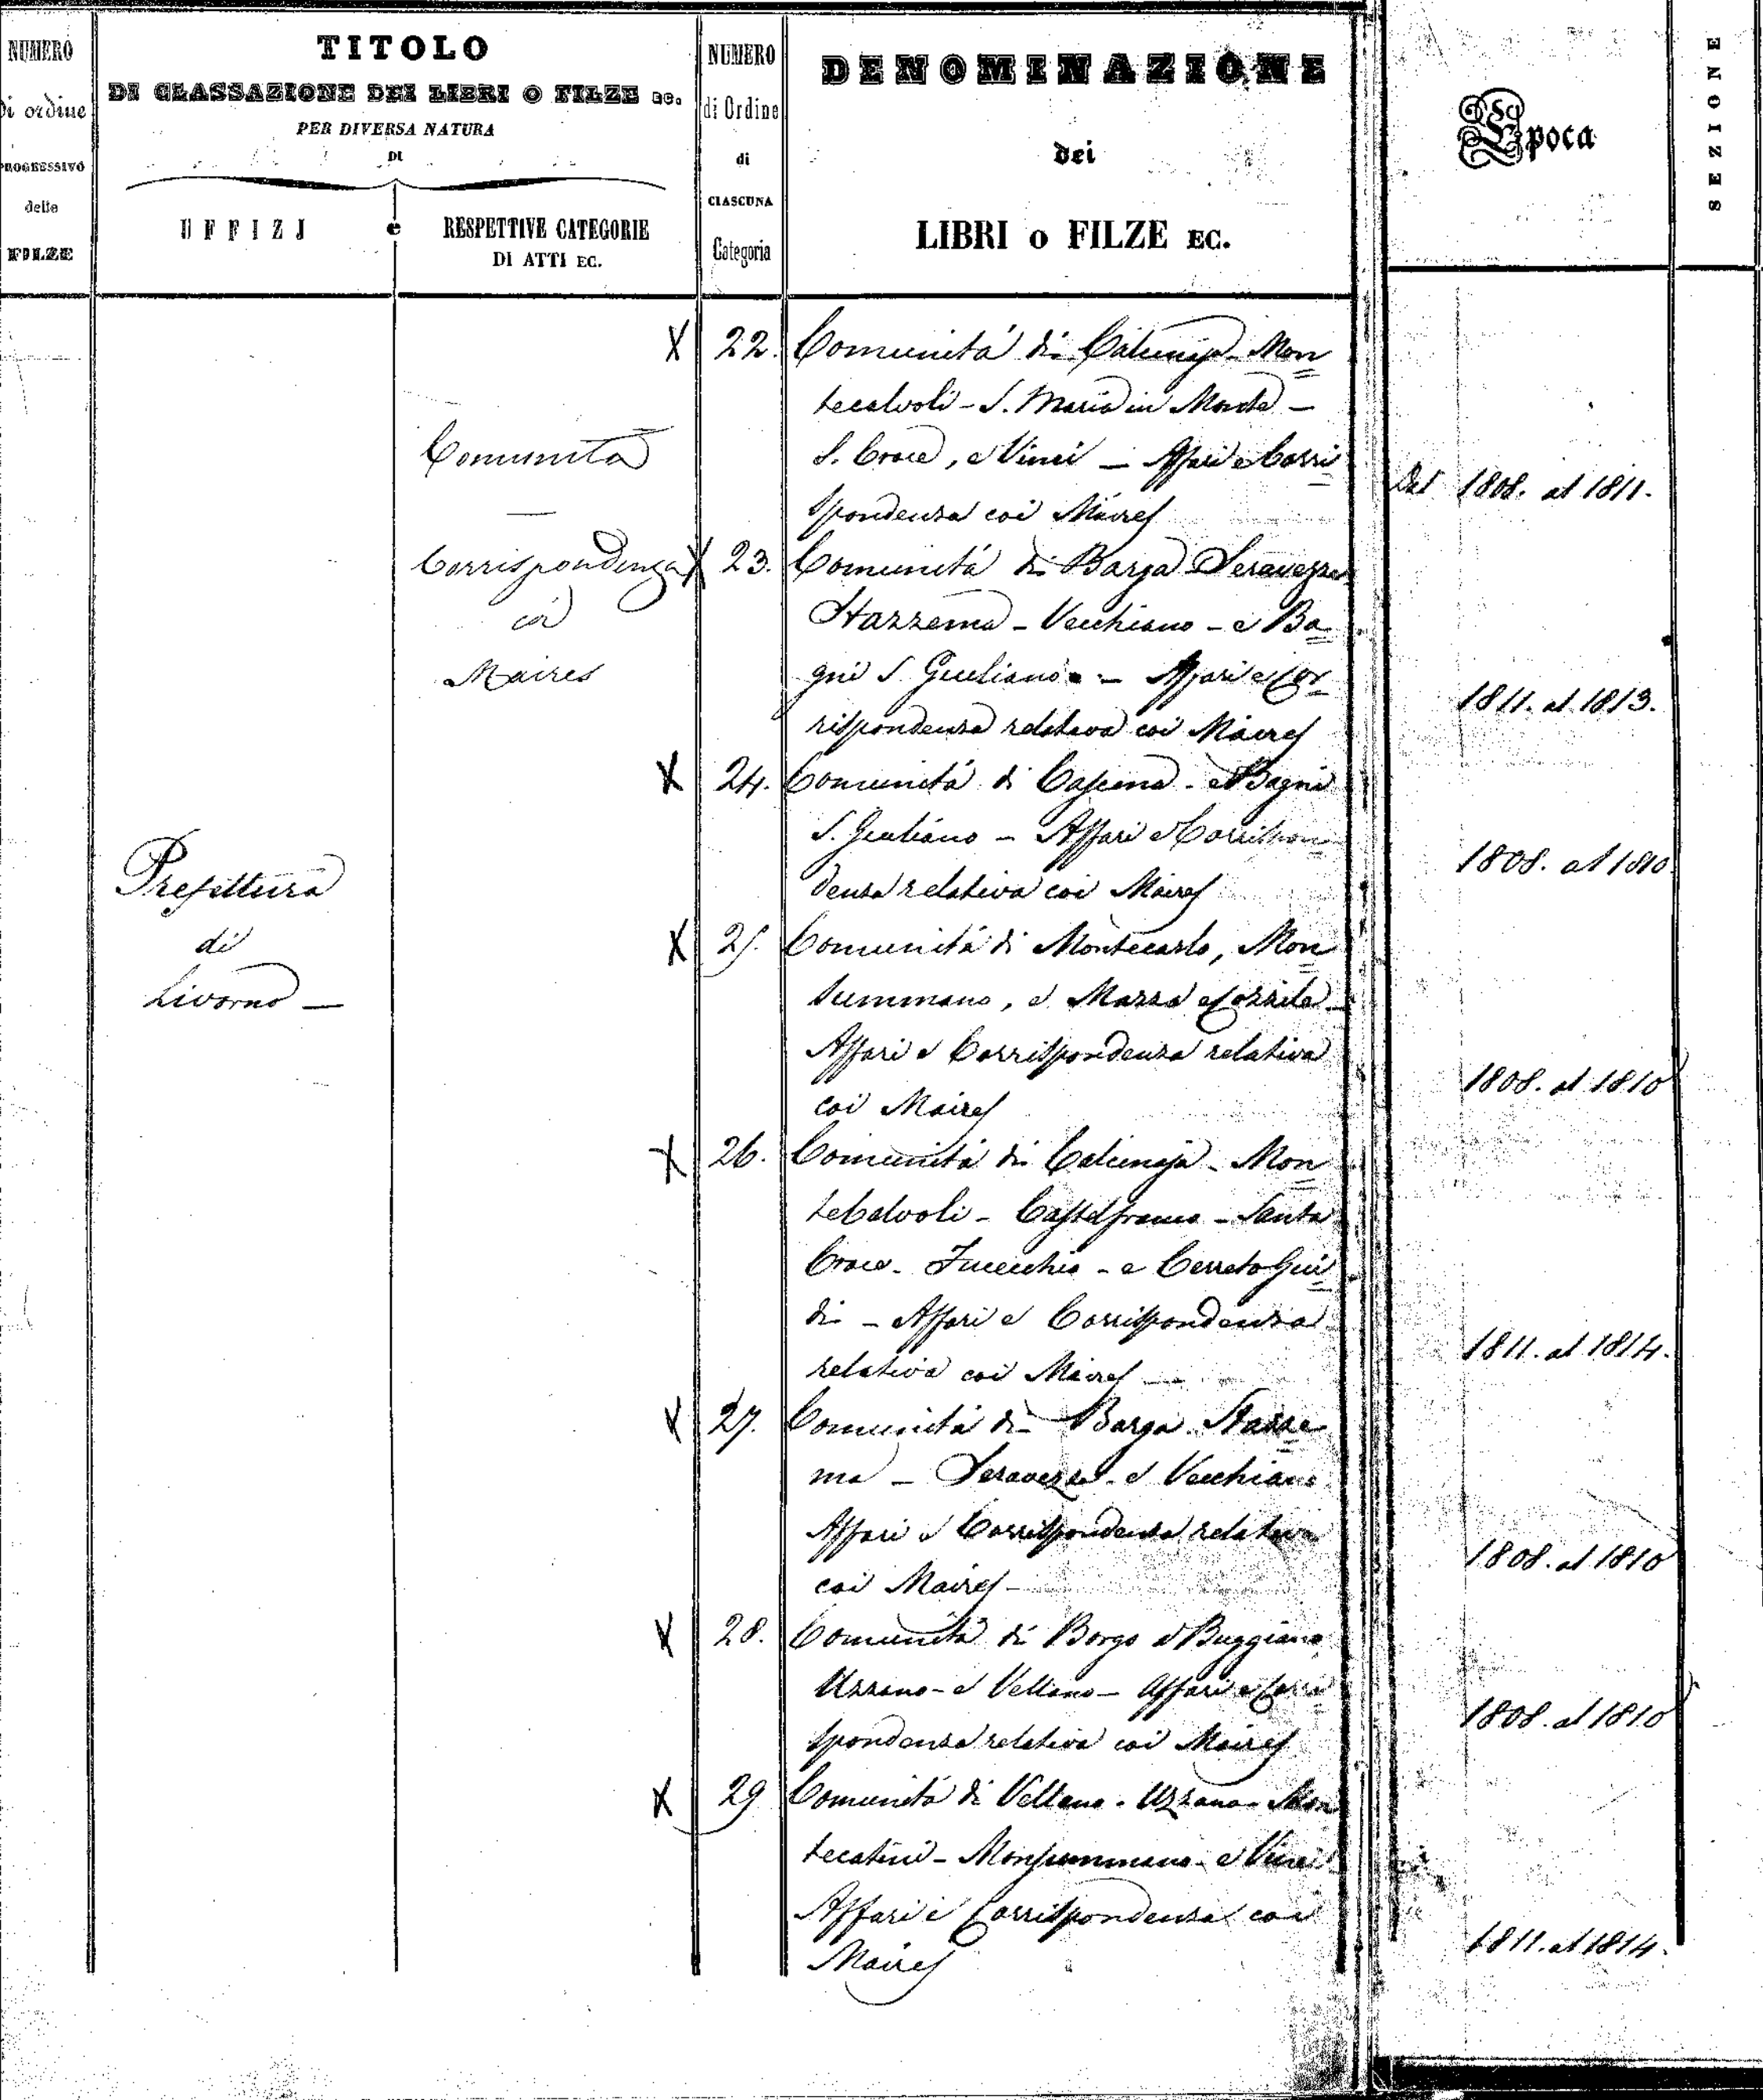 NUMERO
di ordine
PROGESSIVO
delle
FILZE
TITOLO
DI CLASSAZIONE DEI LIBRI O FILZE ec.
PER DIVERSA NATURA
DI
UFFIZJ e RESPETTIVE CATEGORIE
DI ATTI EC.
NUMERO
di Ordine
di
CIASCUNA
Categoria
DENOMINAZIONE
dei
LIBRI o FILZE EC.
Epoca
SEZIONE
Prefettura
di
Livorno —
Comunità
—
Corrispondenza
coi
Maires
X 22. Comunità di Calcinaja - Mon
tecalvoli - S. Maria in Monte —
S. Croce, e Vinci — Affari e Corri
spondenza coi Maires
Dal 1808. al 1811.
X 23. Comunità di Barga Seravezza
Stazzema - Vecchiano - e Ba
gni S. Giuliano - Affari e Cor
rispondenza relativa coi Maires
1811. al 1813.
X 24. Comunità di Cascina - e Bagni
S. Giuliano - Affari e Corrispon
denza relativa coi Maires
1808. al 1810
X 25. Comunità di Montecarlo, Mon
summano, e Massa e Cozzile
Affari e Corrispondenza relativa
coi Maires
1808. al 1810
X 26. Comunità di Calcinaja - Mon
teCalvoli - Castelfranco - Santa
Croce - Fucecchio - e Cerreto Gui
di - Affari e Corrispondenza
relativa coi Maires —
1811. al 1814.
X 27. Comunità di Barga Stazze
ma - Seravezza - e Vecchiano
Affari e Corrispondenza relativa
coi Maires -
1808. al 1810
X 28. Comunità di Borgo a Buggiano
Uzzano - e Vellano - Affari e Corri
spondenza relativa coi Maires
1808. al 1810
X 29 Comunità di Vellano - Uzzano - Mon
tecatini - Monsummano - e Vinci
Affari e Corrispondenza coi
Maires
1811. al 1814.